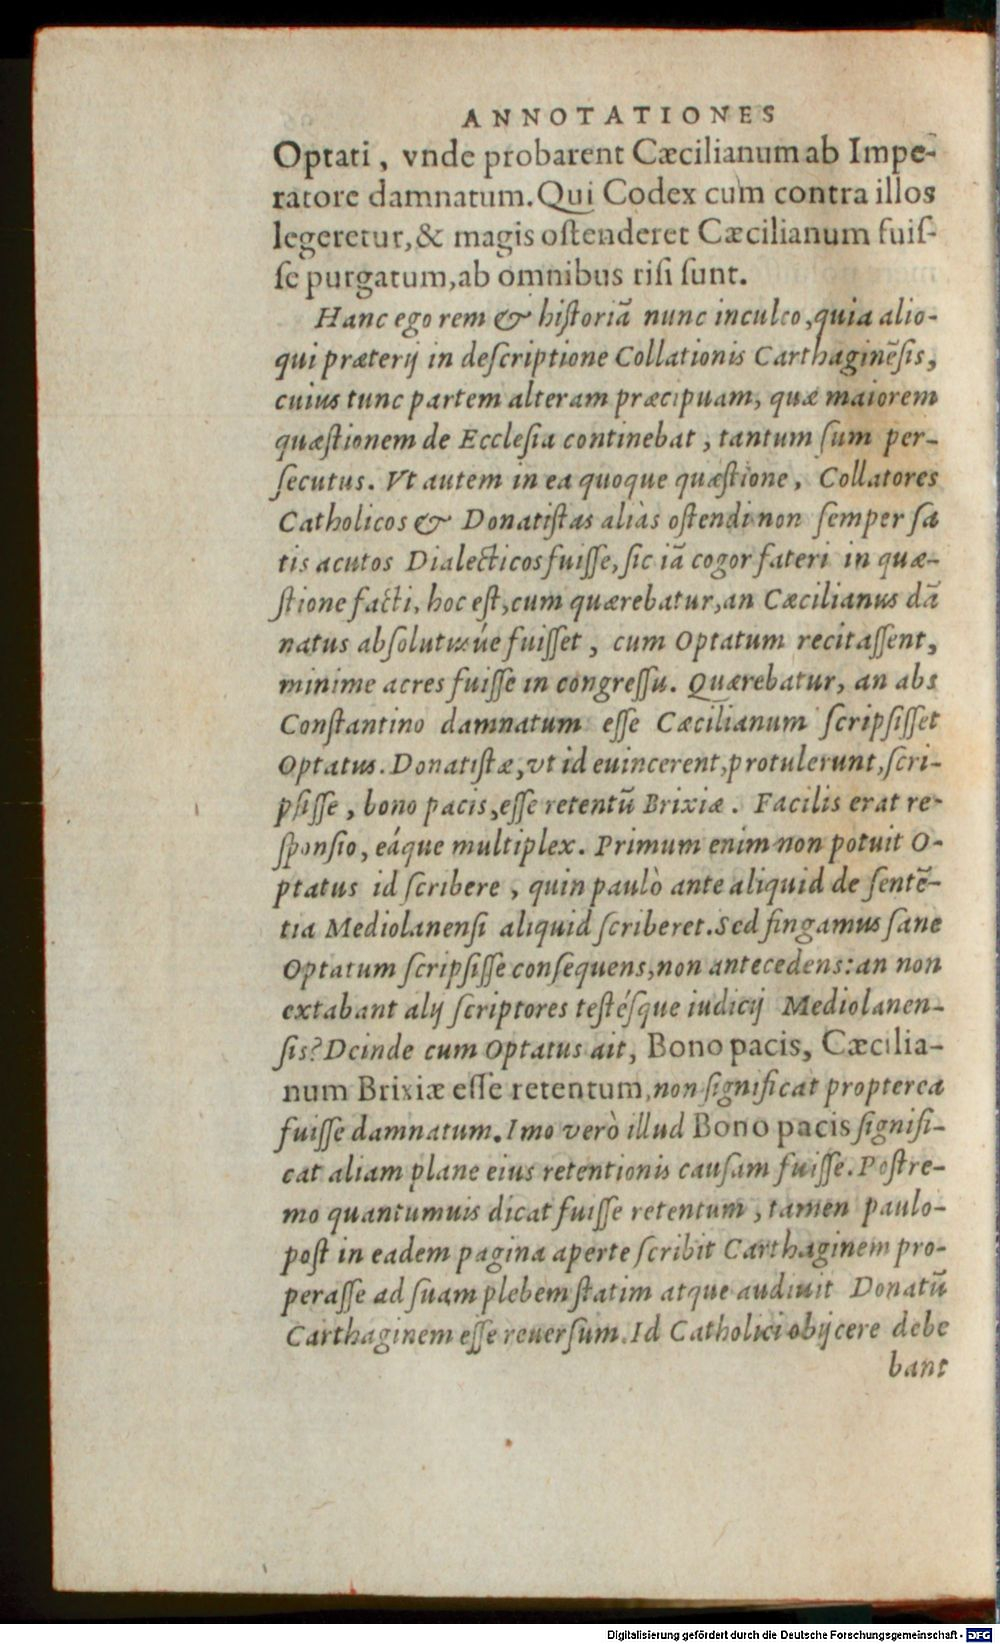 ANNOTATIONES
Optati, vnde probarent Cæcilianum ab Impe-
ratore damnatum. Qui Codex cum contra illos
legeretur, & magis oſtenderet Cæcilianum fuiſ-
ſe purgatum, ab omnibus riſi ſunt.
Hanc ego rem & hiſtoriā nunc inculco, quia alio-
qui præterij in deſcriptione Collationis Carthaginēſis,
cuius tunc partem alteram præcipuam, quæ maiorem
quæſtionem de Eccleſia continebat, tantum ſum per-
ſecutus. Vt autem in ea quoque quæſtione, Collatores
Catholicos & Donatiſtas aliàs oſtendi non ſemper ſa
tis acutos Dialecticos fuiſſe, ſic iā cogor fateri in quæ-
ſtione facti, hoc eſt, cum quærebatur, an Cæcilianus dā
natus abſolutusúe fuiſſet, cum Optatum recitaſſent,
minime acres fuiſſe in congreſſu. Quærebatur, an abs
Conſtantino damnatum eſſe Cæcilianum ſcripſiſſet
Optatus. Donatiſtæ, vt id euincerent, protulerunt, ſcri-
pſiſſe, bono pacis, eſſe retentū Brixiæ. Facilis erat re-
ſponſio, eáque multiplex. Primum enim non potuit O-
ptatus id ſcribere, quin paulò ante aliquid de ſentē-
tia Mediolanenſi aliquid ſcriberet. Sed fingamus ſane
Optatum ſcripſiſſe conſequens, non antecedens: an non
extabant alij ſcriptores teſtéſque iudicij Mediolanen-
ſis? Deinde cum Optatus ait, Bono pacis, Cæcilia-
num Brixiæ eſſe retentum, non ſignificat propterea
fuiſſe damnatum. Imo verò illud Bono pacis ſignifi-
cat aliam plane eius retentionis cauſam fuiſſe. Poſtre-
mo quantumuis dicat fuiſſe retentum, tamen paulo-
poſt in eadem pagina aperte ſcribit Carthaginem pro-
peraſſe ad ſuam plebem ſtatim atque audiuit Donatū
Carthaginem eſſe reuerſum. Id Catholici obijcere debe
bant
Digitalisierung gefördert durch die Deutsche Forschungsgemeinschaft - DFG